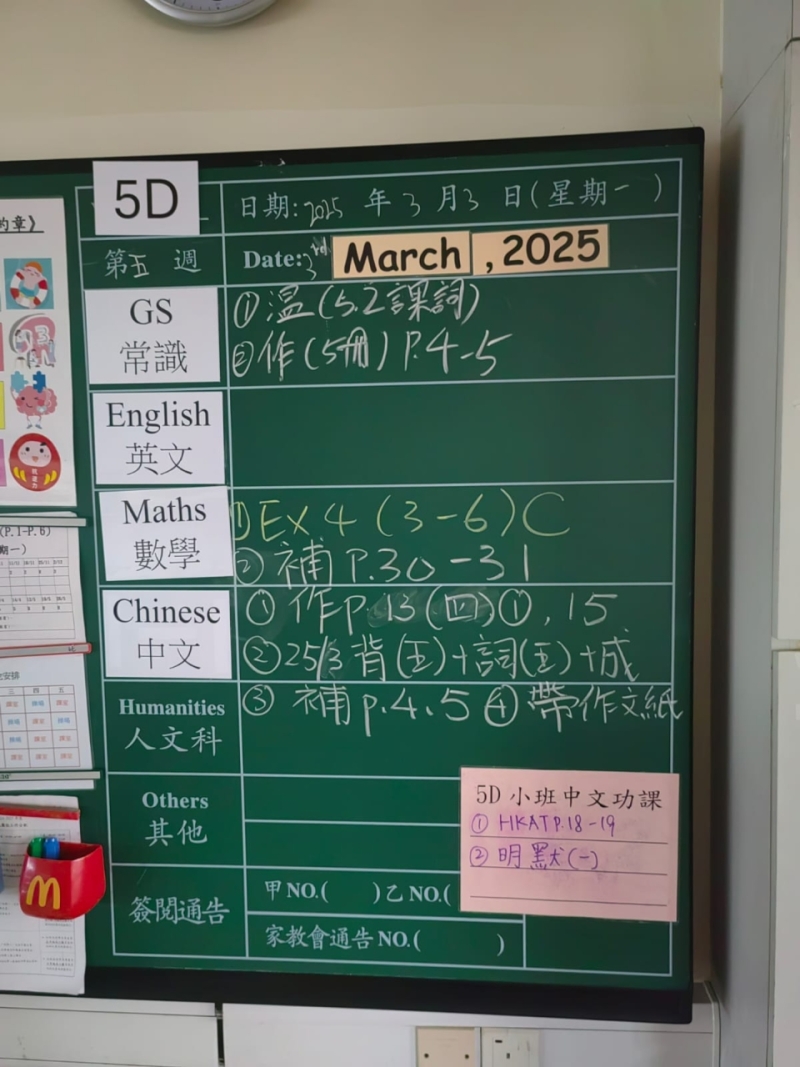 5D
日期: 2025 年 3 月 3 日(星期一)
第五週
Date: 3rd March , 2025
GS
常識
① 温(5.2課詞)
② 作(5冊) P.4-5
English
英文
Maths
數學
① EX 4 (3-6) C
② 補 P.30-31
Chinese
中文
① 作 p.13(四)①, 15
② 25/3 背(五)+詞(五)+成
③ 補 p.4、5 ④ 帶作文紙
Humanities
人文科
Others
其他
5D 小班中文功課
① HKAT P.18-19
② 明默(一)
簽閱通告
甲NO.( )乙NO.(
家教會通告NO.( )
的章》
(P.1-P.6)
期一)
安排
三 四 五